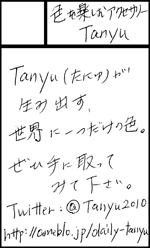 色を楽しむアクセサリー
Tanyu
Tanyu(たにゅ)が
生み出す、
世界に一つだけの色。
ぜひ手に取って
みて下さい。
Twitter:@Tanyu2010
http://ameblo.jp/daily-tanyu